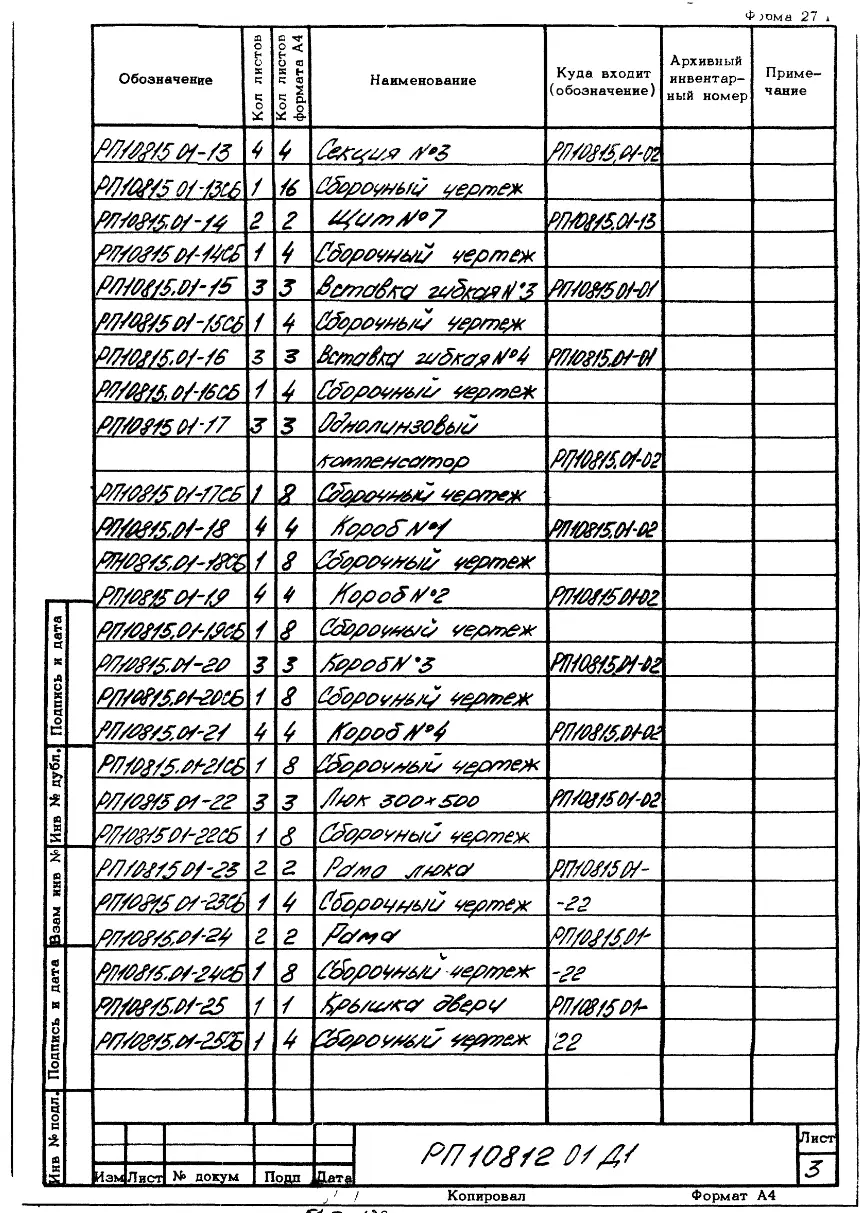 Форма 27
Обозначение | Кол листов | Кол листов формата А4 | Наименование | Куда входит (обозначение) | Архивный инвентарный номер | Примечание
РП10815.01-13 4 4 Секция №3 РП10815.01-02
РП10815 01-13СБ 1 16 Сборочный чертеж
РП10815.01-14 2 2 Щит №7 РП10815.01-13
РП10815 01-14СБ 1 4 Сборочный чертеж
РП10815.01-15 3 3 Вставка гибкая №3 РП10815 01-01
РП10815 01-15СБ 1 4 Сборочный чертеж
РП10815.01-16 3 3 Вставка гибкая №4 РП10815.01-01
РП10815.01-16СБ 1 4 Сборочный чертеж
РП10815 01-17 3 3 Однолинзовый
компенсатор РП10815.01-02
РП10815 01-17СБ 1 8 Сборочный чертеж
РП10815.01-18 4 4 Короб №1 РП10815.01-02
РП10815.01-18СБ 1 8 Сборочный чертеж
РП10815 01-19 4 4 Короб №2 РП10815 01-02
РП10815.01-19СБ 1 8 Сборочный чертеж
РП10815.01-20 3 3 Короб №3 РП10815.01-02
РП10815.01-20СБ 1 8 Сборочный чертеж
РП10815.01-21 4 4 Короб №4 РП10815.01-02
РП10815.01-21СБ 1 8 Сборочный чертеж
РП10815 01-22 3 3 Люк 300×500 РП10815 01-02
РП10815 01-22СБ 1 8 Сборочный чертеж
РП10815 01-23 2 2 Рама люка РП10815 01-
РП10815 01-23СБ 1 4 Сборочный чертеж -22
РП10815.01-24 2 2 Рама РП10815.01-
РП10815.01-24СБ 1 8 Сборочный чертеж -22
РП10815.01-25 1 1 Крышка двери РП10815 01-
РП10815.01-25СБ 1 4 Сборочный чертеж 22
Подпись и дата
Инв № дубл.
Взам инв №
Подпись и дата
Инв № подл.
Изм Лист № докум Подп Дата
РП 10812 01 Д1
Лист
3
Копировал Формат А4